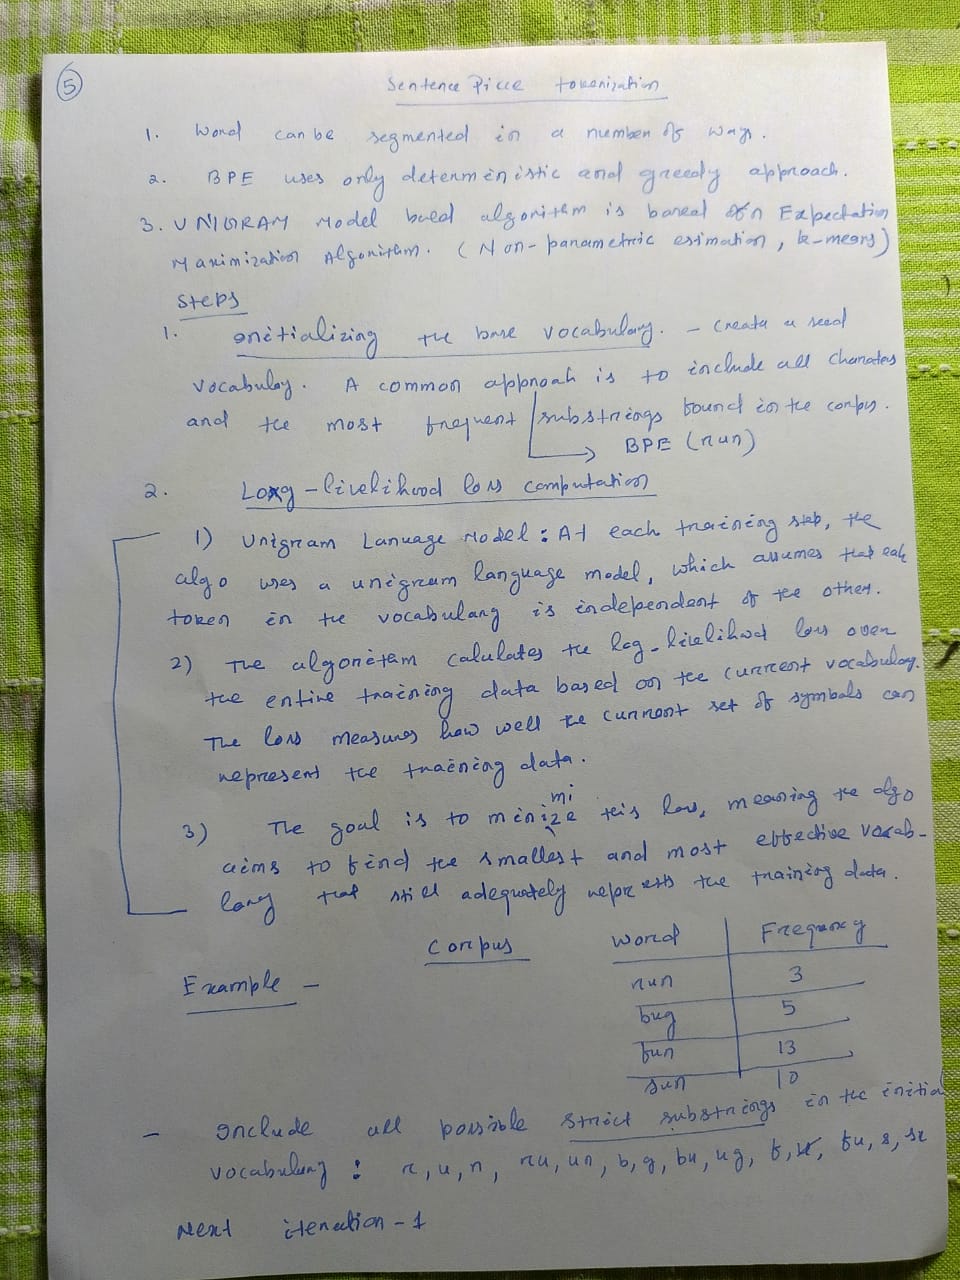 5
Sentence Piece tokenization
1. Word can be segmented in a number of ways.
2. BPE uses only deterministic and greedy approach.
3. UNIGRAM Model based algorithm is based on Expectation
Maximization Algorithm. (Non-parametric estimation, k-means)
Steps
1. Initializing the base vocabulary. - Create a seed
vocabulary. A common approach is to include all characters
and the most frequent substrings found in the corpus.
BPE (run)
2. Log-likelihood loss computation
1) Unigram Lanuage Model: At each training step, the
algo uses a unigram language model, which assumes that each
token in the vocabulary is independent of the other.
2) The algorithm calculates the log-likelihood loss over
the entire training data based on the current vocabulary.
The loss measures how well the current set of symbols can
represent the training data.
3) The goal is to minimize this loss, meaning the algo
aims to find the smallest and most effective vocab-
lary that still adequately the training data.
Example - Corpus Word Frequency
run 3
bug 5
fun 13
sun 10
- Include all possible strict substrings in the initial
vocabulary : r, u, n, ru, un, b, g, bu, ug, f, fu, s, su
Next iteration - 1